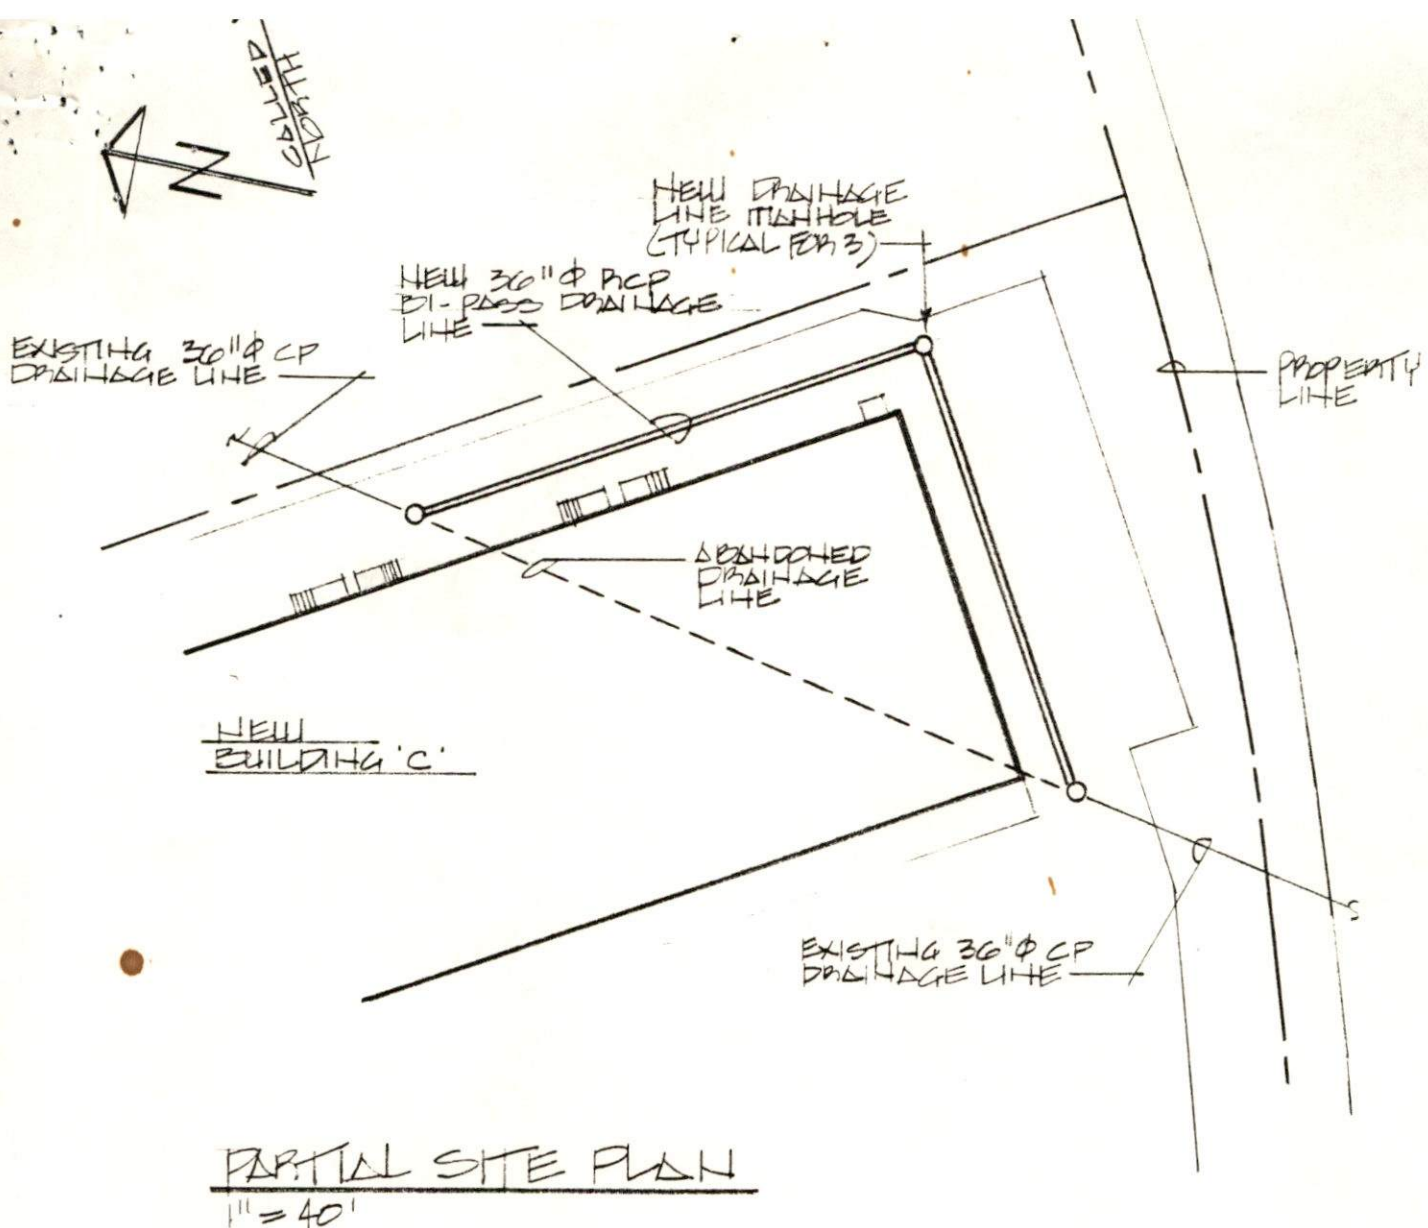 CALLED
NORTH
N
NEW DRAINAGE
LINE MANHOLE
(TYPICAL FOR 3)
NEW 36"Φ RCP
BI-PASS DRAINAGE
LINE
EXISTING 36"Φ CP
DRAINAGE LINE
PROPERTY
LINE
ABANDONED
DRAINAGE
LINE
NEW
BUILDING 'C'
EXISTING 36"Φ CP
DRAINAGE LINE
PARTIAL SITE PLAN
1" = 40'